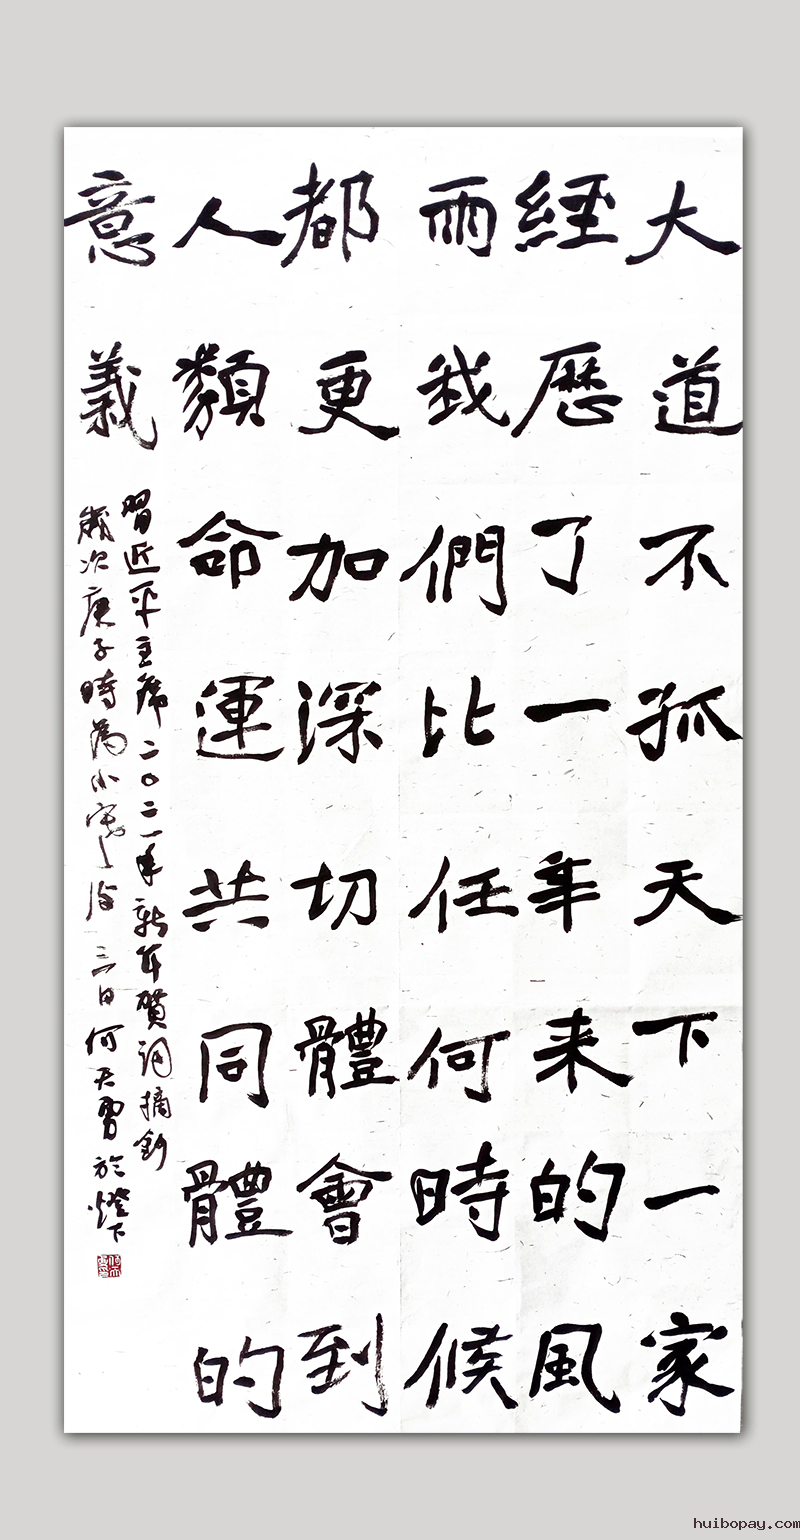 大道不孤天下一家
經歷了一年来的風
雨我們比任何時候
都更加深切體會到
人類命運共同體的
意義
習近平主席二〇二一年新年賀詞摘鈔
歲次庚子時為小寒之後三日何天於燈下
huibopay.com